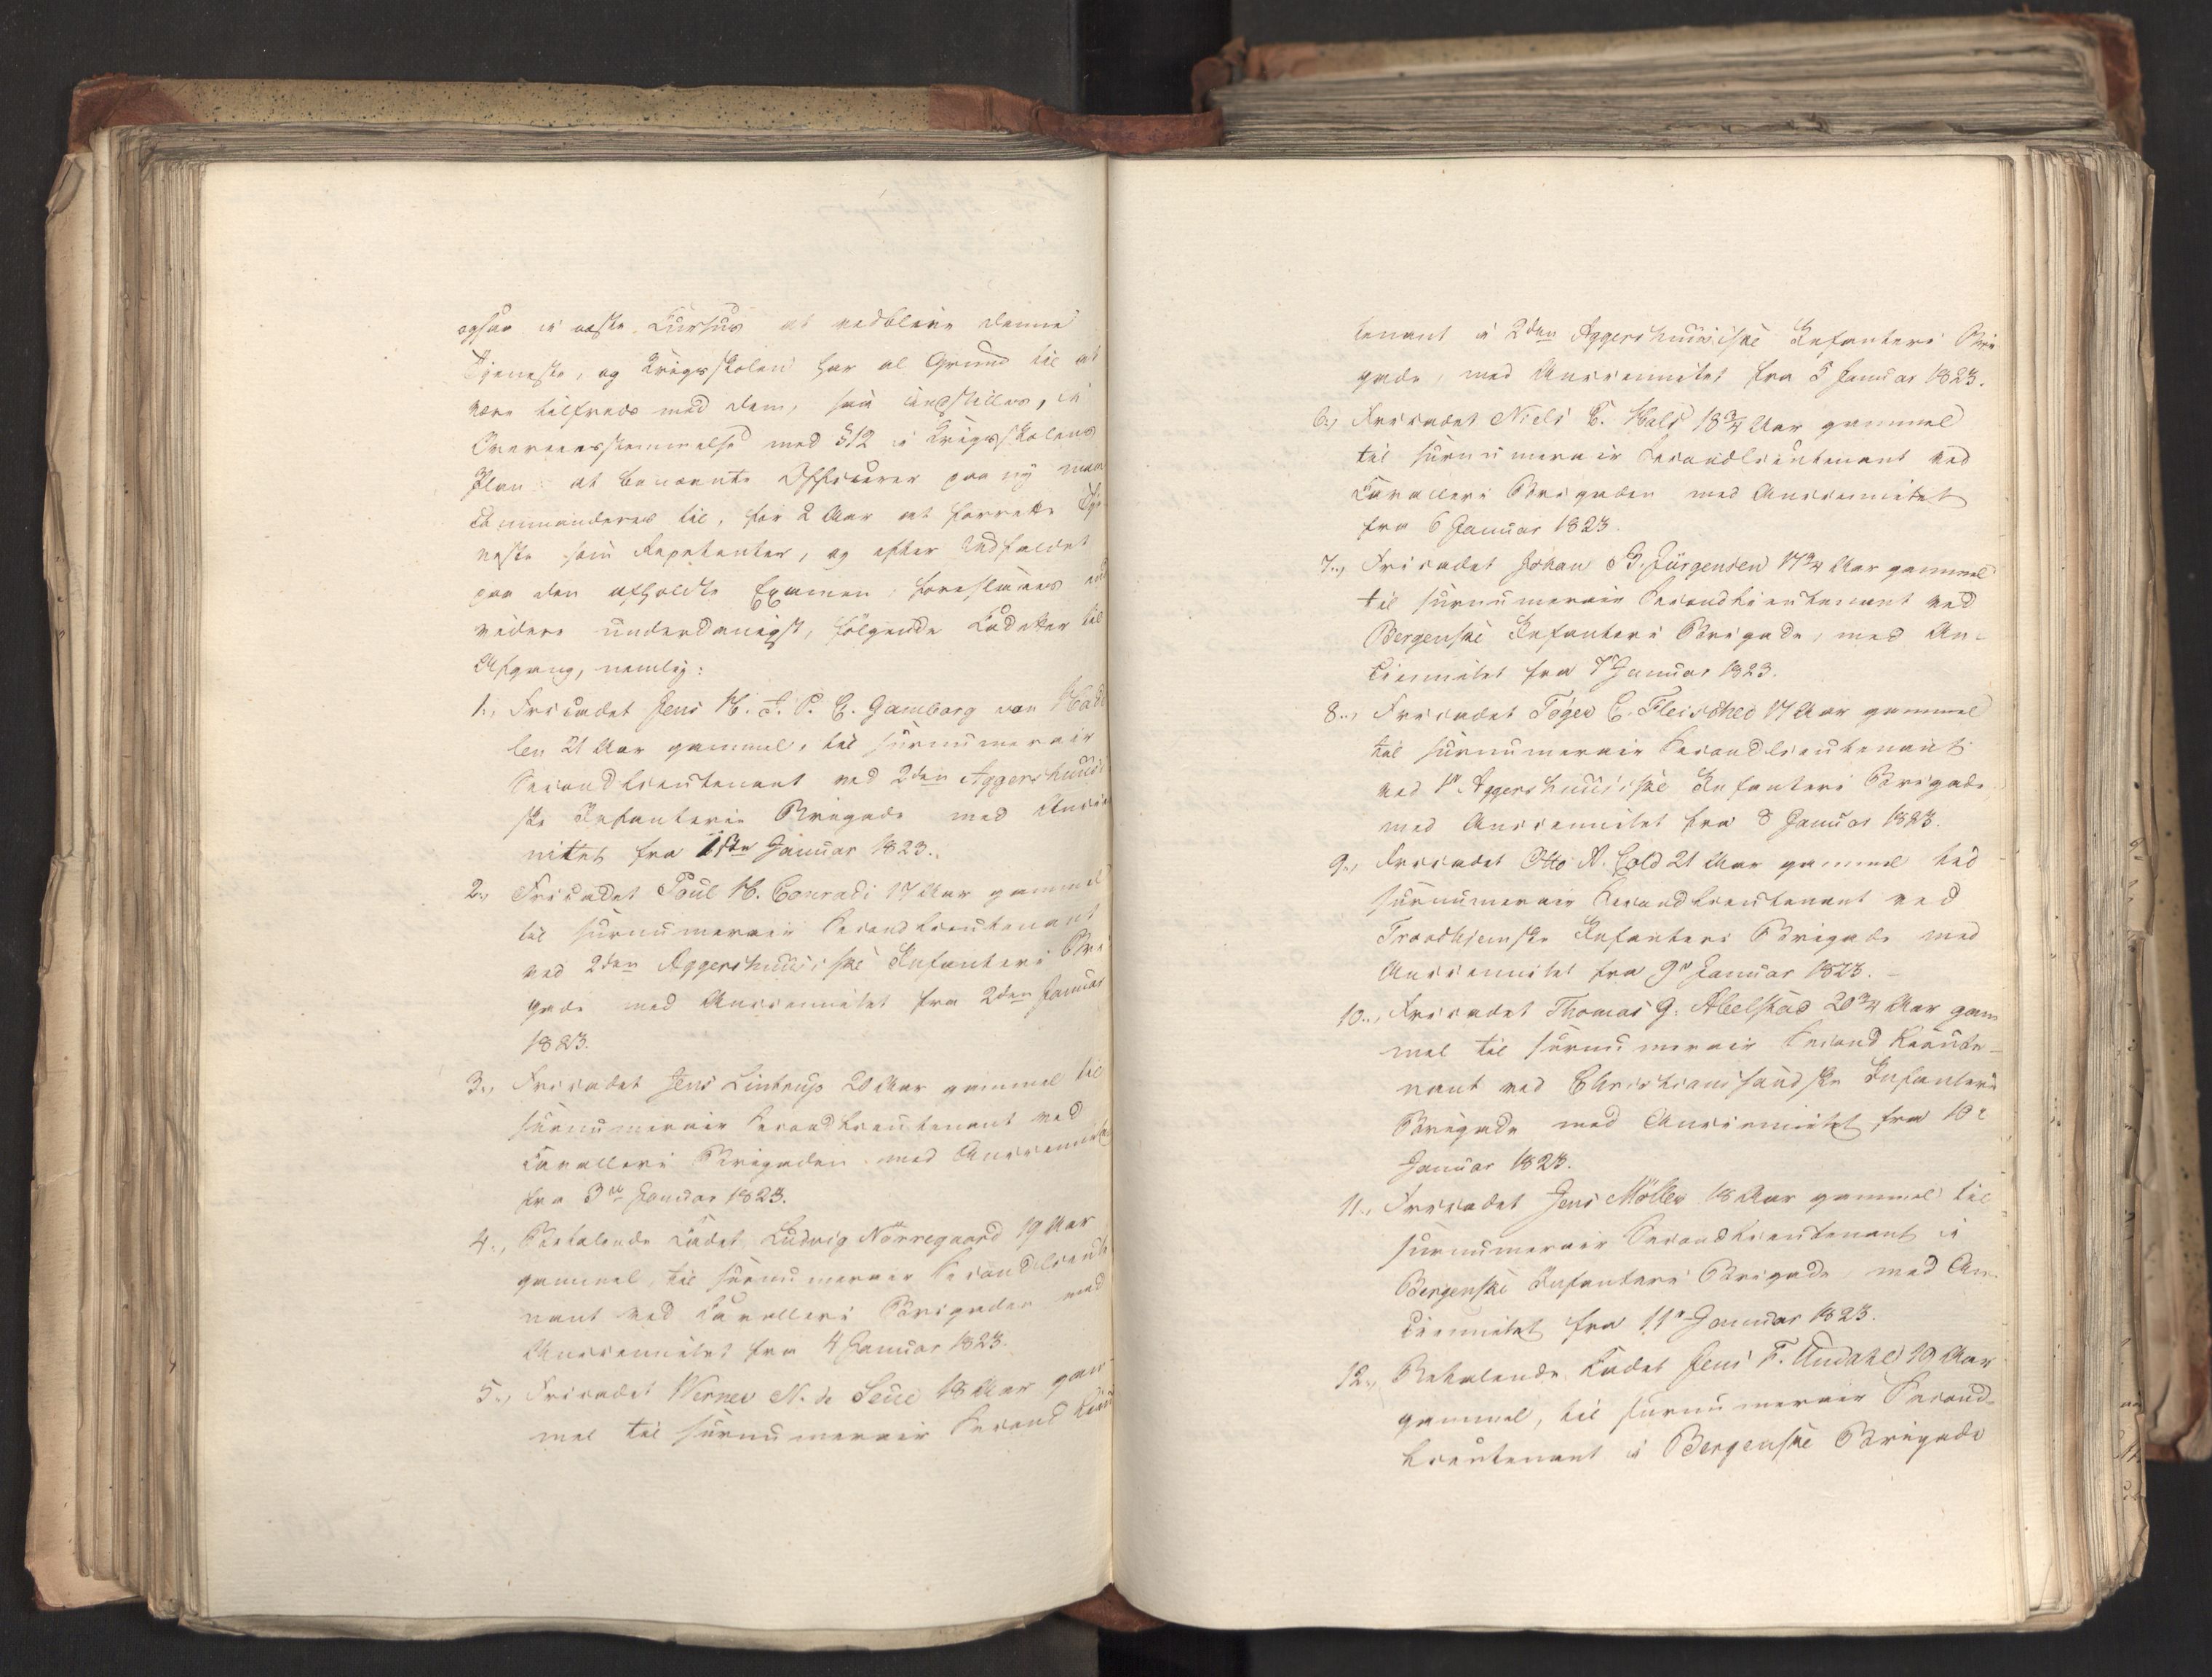 ogsaa i næste Cursus at vedblive denne
Tjeneste, og Krigsskolen har al Grund til at
være tilfreds med dem, saa indstilles, i
Overeensstemmelse med §12 i Krigsskolens
Plan at benævnte Officerer paa ny maa
commanderes til, for 2 Aar at forrette Tje-
neste som Repetenter, og efter Udfaldet
paa den afholdte Examen foreslaaes end
videre underdanigst, følgende Cadetter til
Afgang, nemlig:
1., Fricadet Jens H. F. P. E. Gamborg von Had
len 21 Aar gammel, til surnumerair
Secondlieutenant ved 2den Aggershuusi
ske Infanterie Brigade med Ancien
nitet fra 1ste Januar 1823.
2., Fricadet Poul H. Conradi 17 Aar gammel
til surnumerair Secondlieutenant
ved 2den Aggershuusiske Infanteri Bri
gade med Anciennitet fra 2den Januar
1823.
3., Fricadet Jens Lintrup 20 Aar gammel til
surnumerair Secondlieutenant ved
Cavalleri Brigaden med Anciennitet
fra 3die Januar 1823.
4., Betalende Cadet Ludvig Nörregaard 19 Aar
gammel, til surnumerair Secondlieute
nant ved Cavalleri Brigaden med
Anciennitet fra 4 Januar 1823.
5., Fricadet Werner N. de Seue 18 Aar gam
mel til surnumerair Second Lieu
tenant i 2den Aggershuusiske Infanteri Bri-
gade, med Anciennitet fra 5 Januar 1823.
6., Fricadet Niels C. Hals 18 3/4 Aar gammel
til surnumerair Secondlieutenant ved
Cavalleri Brigaden med Anciennitet
fra 6 Januar 1823.
7., Fricadet Johan B. Jürgensen 17 3/4 Aar gammel
til surnumerair Secondlieutenant ved
Bergenske Infanteri Brigade, med An-
ciennitet fra 7 Januar 1823.
8., Fricadet Töger C. Fleischer 17 Aar gammel
til surnumerair Secondlieutenant
ved 1ste Aggershuusiske Infanteri Brigade
med Anciennitet fra 8 Januar 1823.
9., Fricadet Otto A. Cold 21 Aar gammel til
surnumerair Secondlieutenant ved
Trondhjemske Infanteri Brigade med
Anciennitet fra 9 Januar 1823. -
10., Fricadet Thomas G. Abelstad 20 3/4 Aar gam
mel til surnumerair Second Lieute-
nant ved Christiansandske Infanteri
Brigade med Anciennitet fra 10
Januar 1823.
11., Fricadet Jens Möller 18 Aar gammel til
surnumerair Secondlieutenant i
Bergenske Infanteri Brigade med An-
ciennitet fra 11 Januar 1823.
12., Betalende Cadet Jens F. Undahl 19 Aar
gammel, til surnumerair Second-
lieutenant i Bergenske Brigade